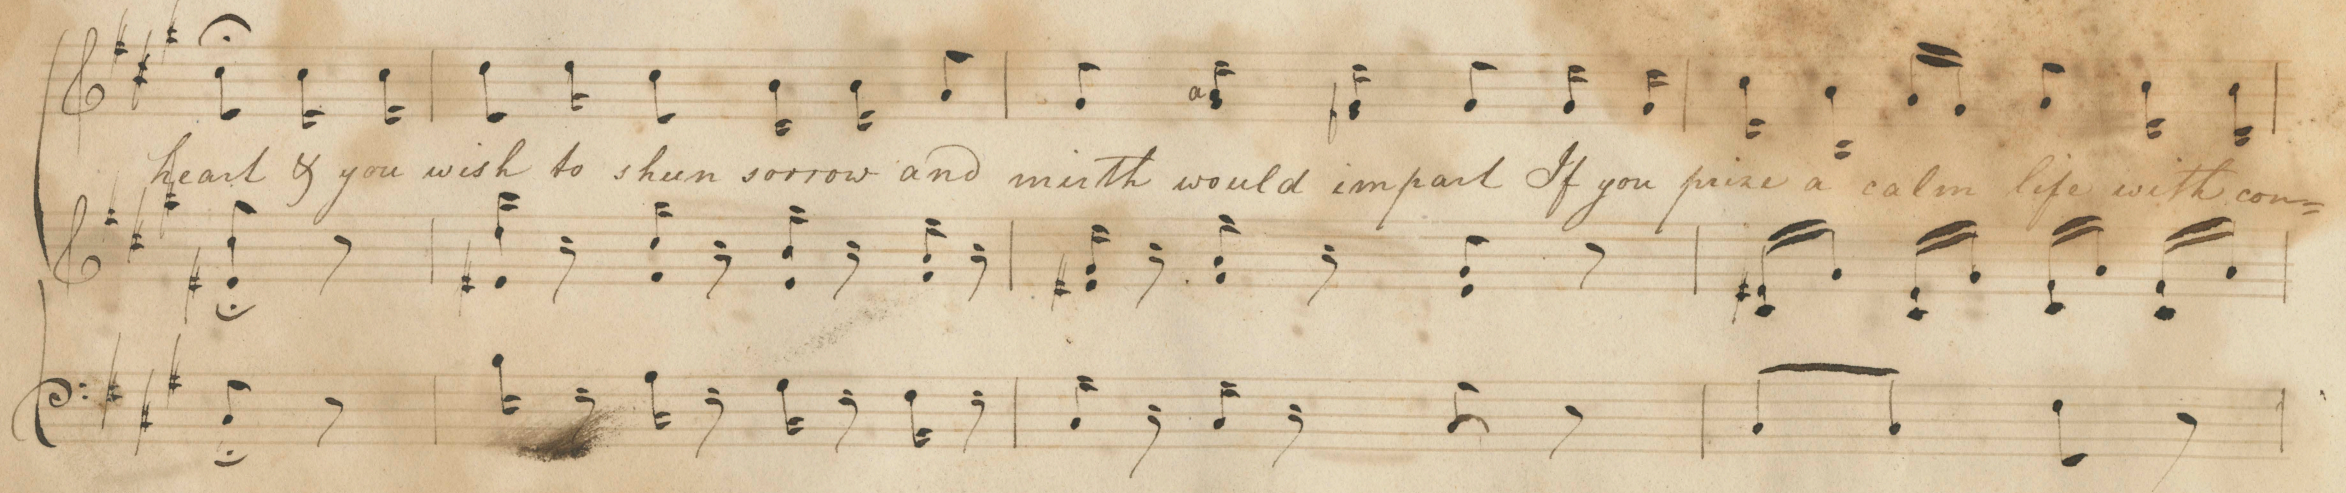 heart & you wish to shun sorrow and mirth would impart If you prize a calm life with con=